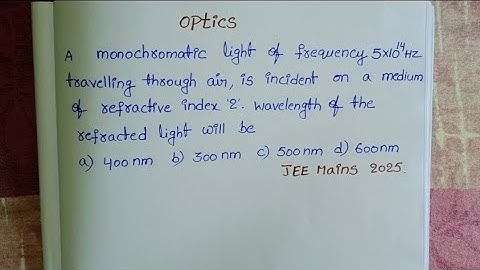 OPtics
A monochromatic light of frequency 5x10¹⁴Hz
travelling through air, is incident on a medium
of refractive index '2'. Wavelength of the
refracted light will be
a) 400nm b) 300nm c) 500nm d) 600nm
JEE Mains 2025.